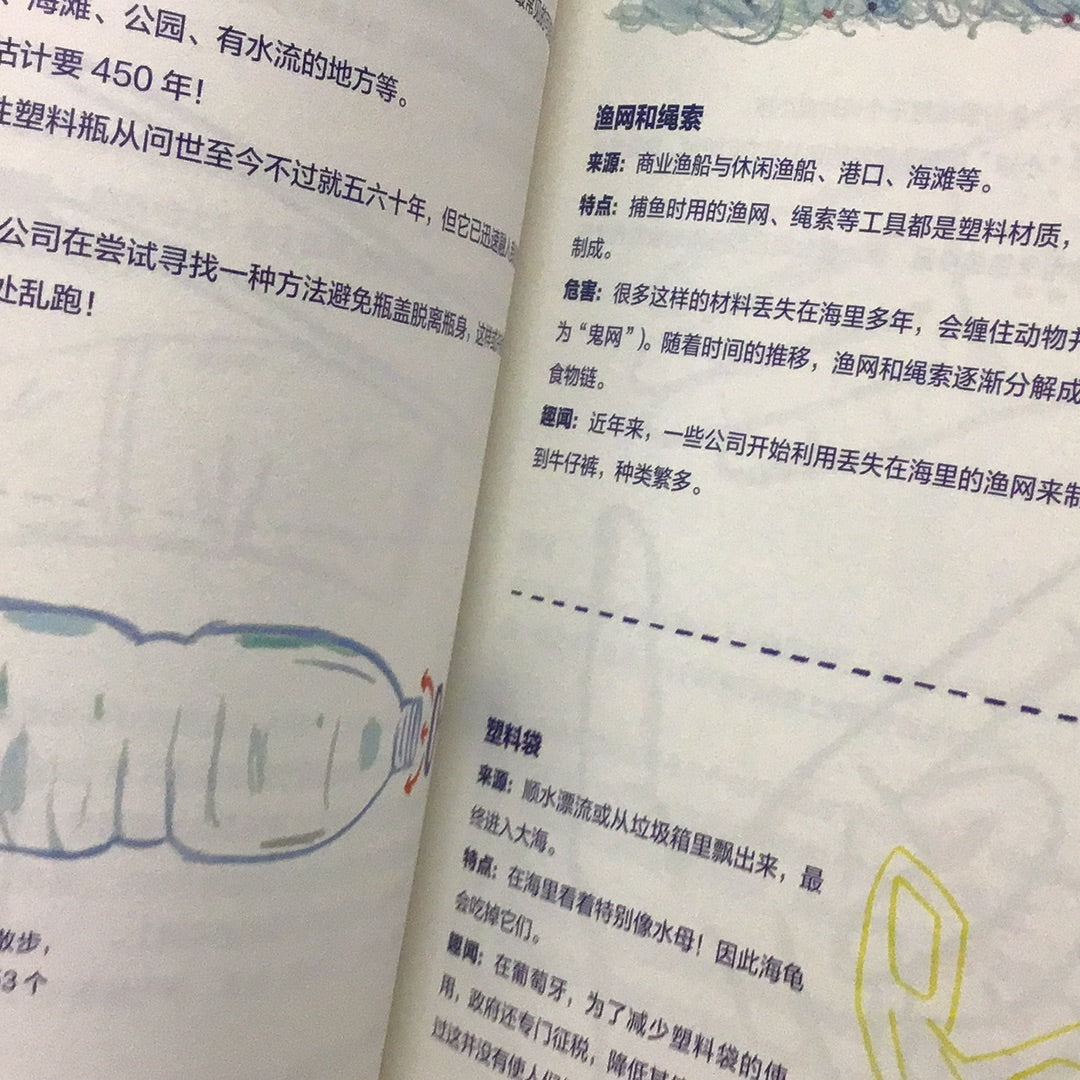 海滩、公园、有水流的地方等。
估计要 450 年!
性塑料瓶从问世至今不过就五六十年，但它已迅速融入
公司在尝试寻找一种方法避免瓶盖脱离瓶身，这样
处乱跑!
散步，
53 个
渔网和绳索
来源：商业渔船与休闲渔船、港口、海滩等。
特点：捕鱼时用的渔网、绳索等工具都是塑料材质，
制成。
危害：很多这样的材料丢失在海里多年，会缠住动物并
为“鬼网”）。随着时间的推移，渔网和绳索逐渐分解成
食物链。
趣闻：近年来，一些公司开始利用丢失在海里的渔网来制
到牛仔裤，种类繁多。
塑料袋
来源：顺水漂流或从垃圾箱里飘出来，最
终进入大海。
特点：在海里看着特别像水母！因此海龟
会吃掉它们。
趣闻：在葡萄牙，为了减少塑料袋的使
用，政府还专门征税，降低其
过这并没有使人们